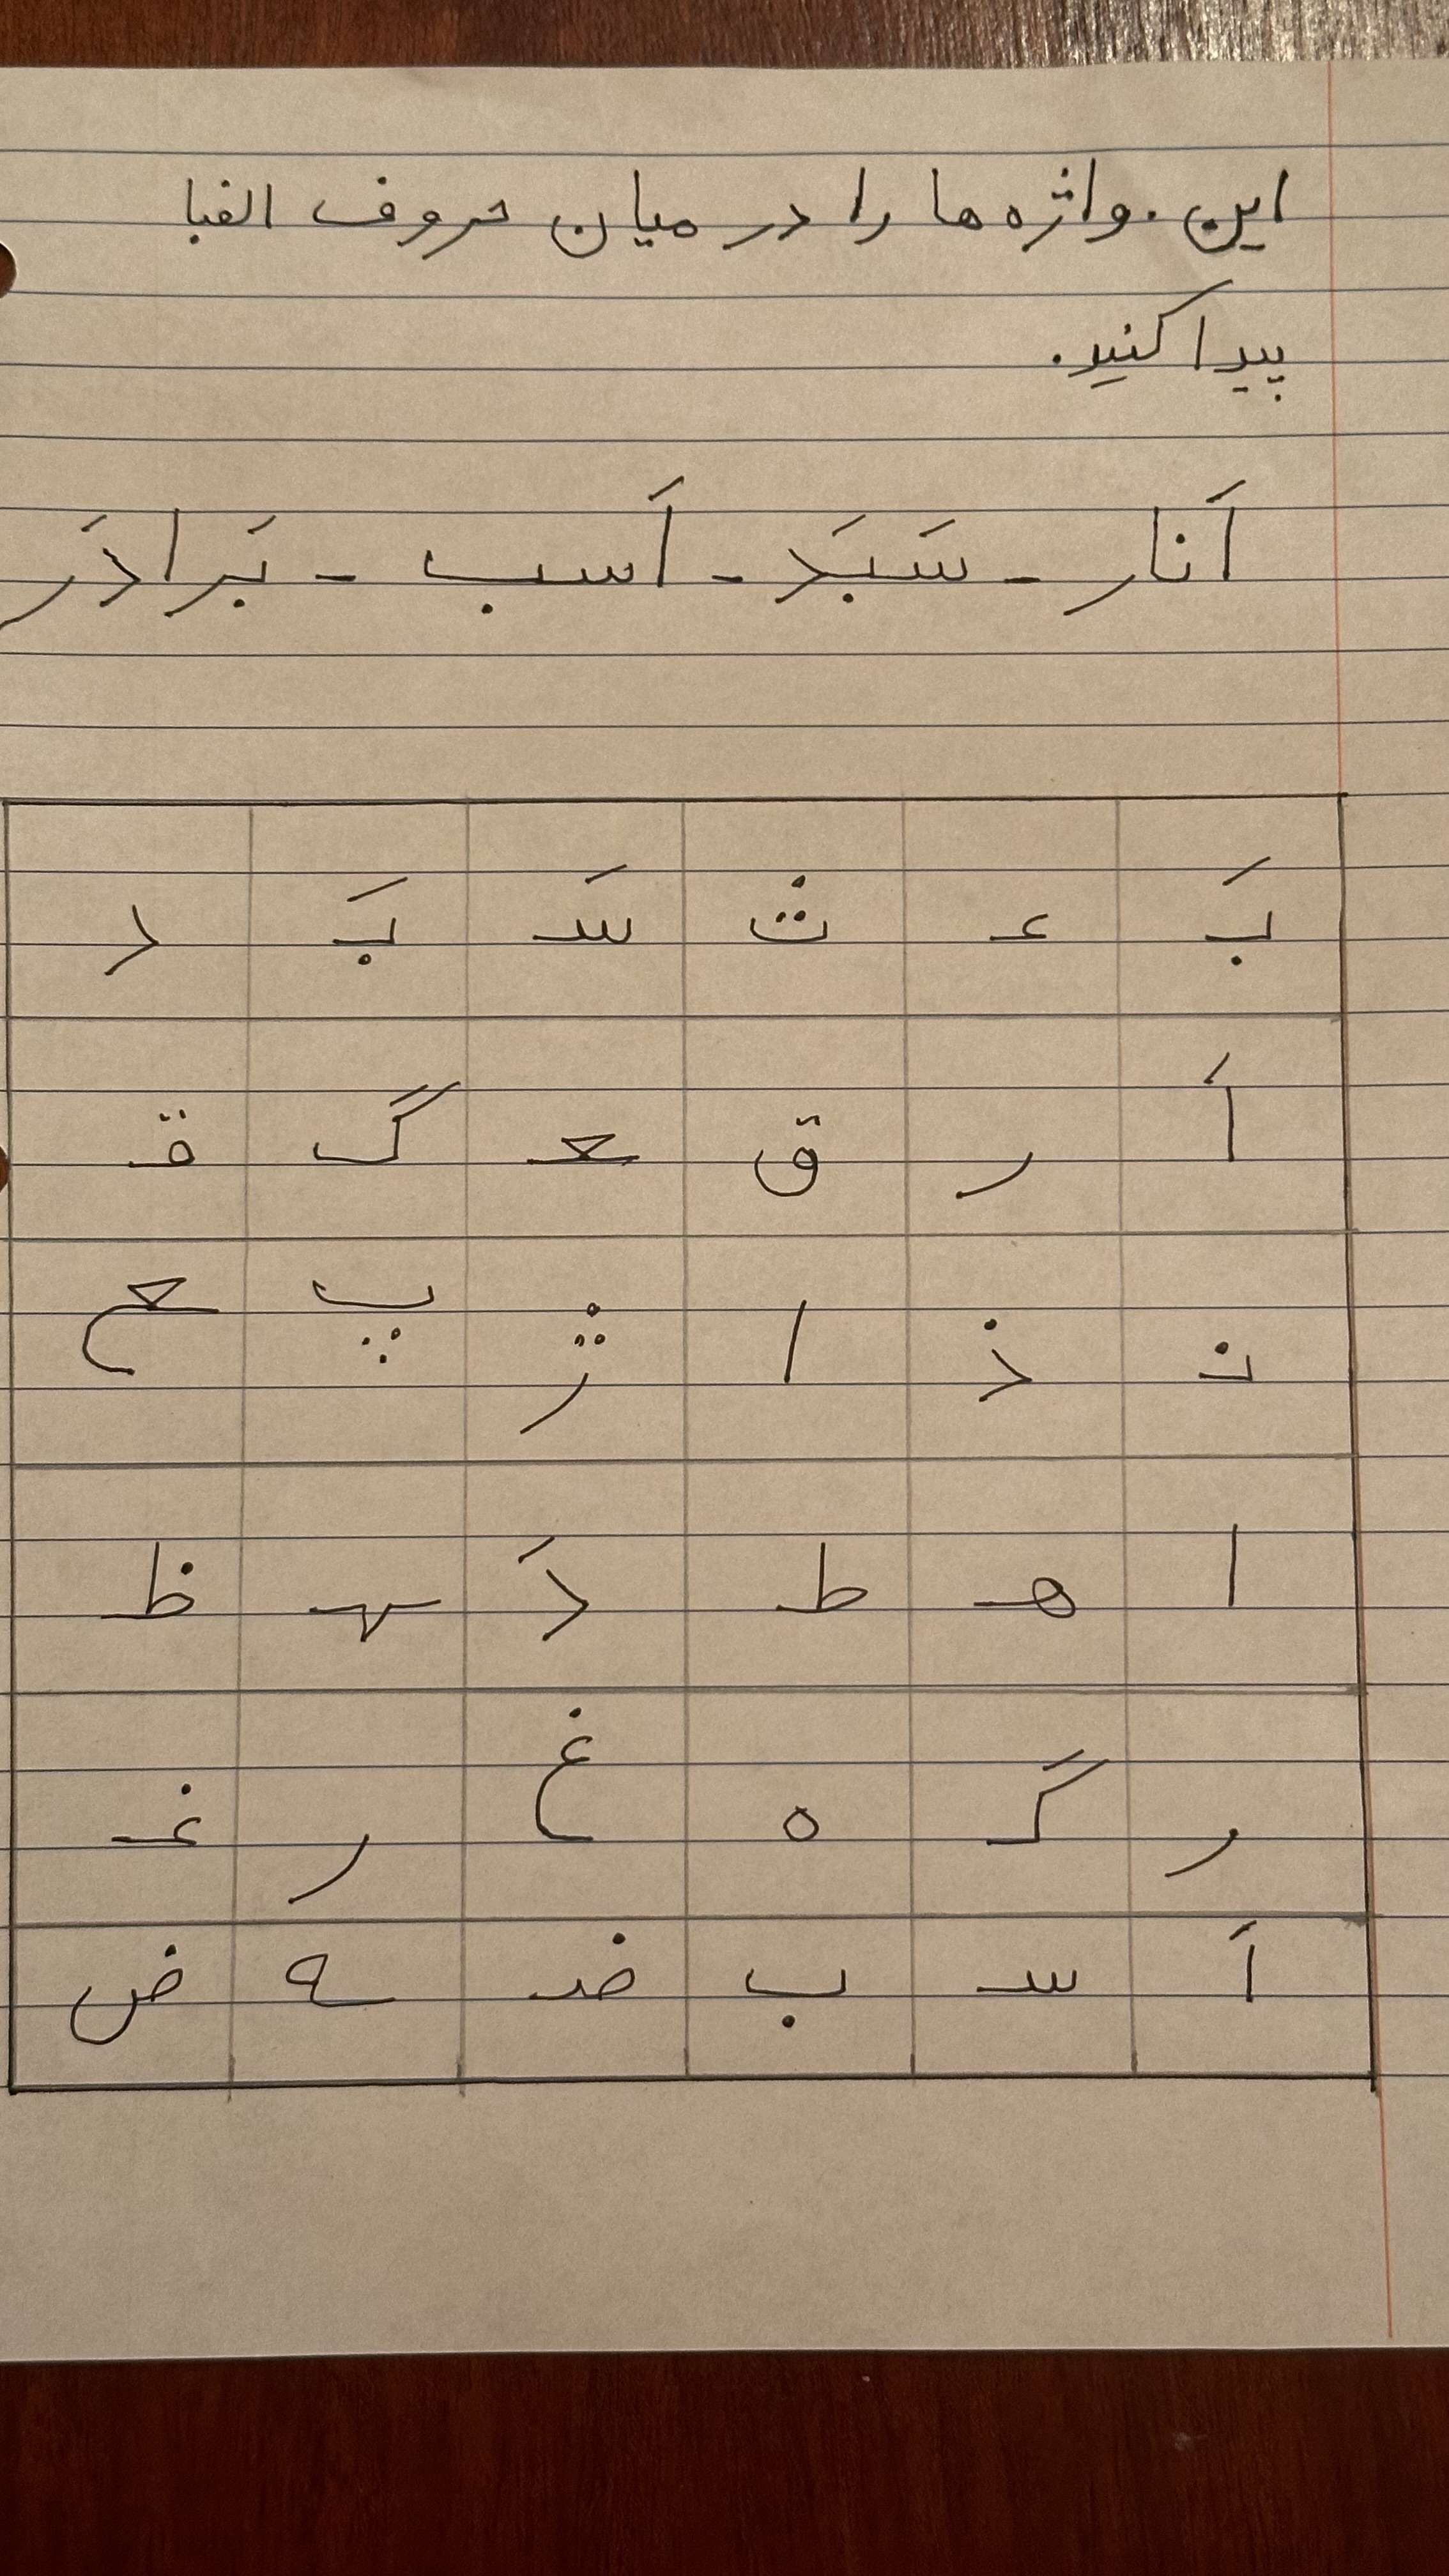 این واژه ها را در میان حروف الفبا
پیدا کنید.
اَنار - سَبَد - اَسب - بَرادَر
بَ عـ ث سَـ بَـ د
اَ ر ق ـعـ گ قـ
نـ ذ ا ژ پ ـع
ا هـ ط دَ ـهـ ظ
ر گـ ه غ ر غـ
اَ سـ ب ضـ ـه ض